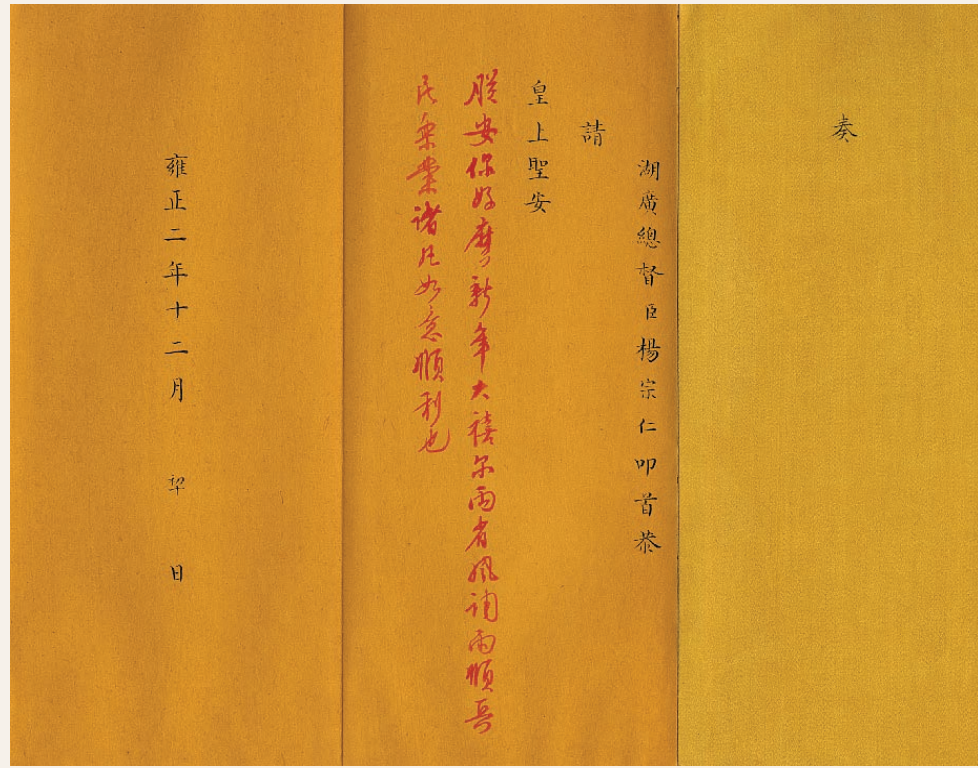 奏
湖廣總督臣楊宗仁叩首恭
請
皇上聖安
朕安你好麽新年大禧尔兩省風調雨順兵
民樂業諸凡如意順利也
雍正二年十二月 初 日